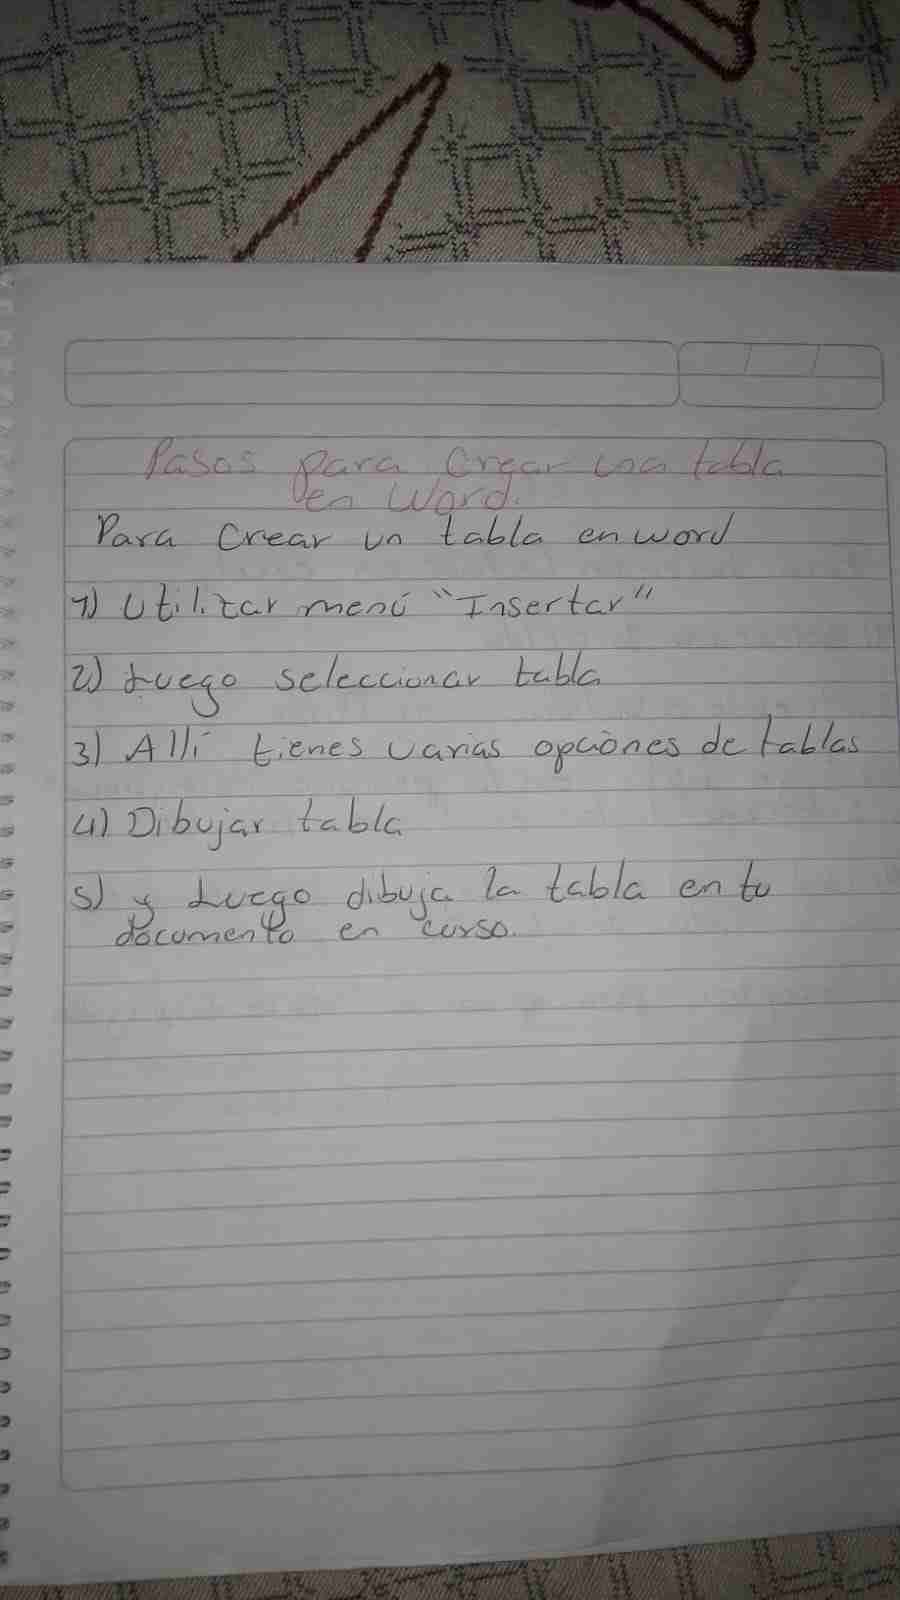 Pasos para crear una tabla
en Word.
Para crear un tabla en word
1) Utilizar menú "Insertar"
2) Luego seleccionar tabla
3) Allí tienes varias opciones de tablas
4) Dibujar tabla
5) y Luego dibuja la tabla en tu
documento en curso.